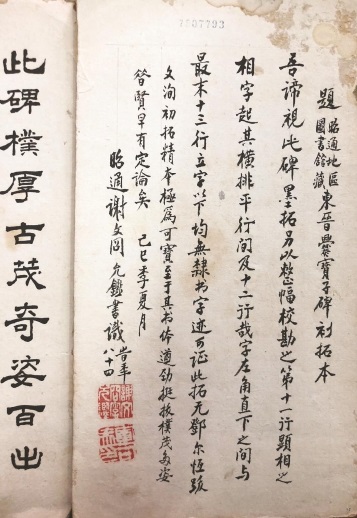 題昭通地區圖書館藏東晉爨寶子碑初拓本
吾諦視此碑墨拓另以整幅校勘之第十一行顕相之
相字起其橫排平行間及十二行哉字左角直下之間与
最末十三行立字以下均無隷书字迹可证此拓无鄧尔恆跋
文洵初拓精本極爲可寶至于其书体遒勁挺拔樸茂多姿
昝賢早有定論矣 己巳季夏月
昭通謝文 允鑑書識 時年八十四
此碑樸厚古茂奇姿百出